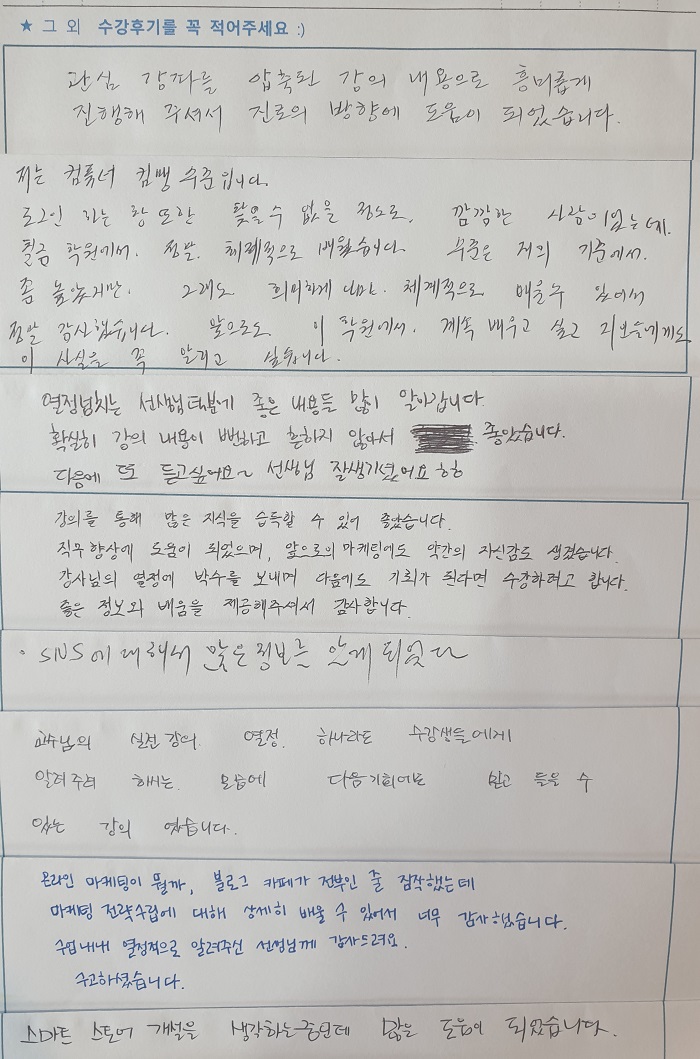 ★ 그 외 수강후기를 꼭 적어주세요 :)
관심 강좌를 압축된 강의 내용으로 흥미롭게
진행해 주셔서 진로의 방향에 도움이 되었습니다.
저는 컴퓨터 컴맹 수준입니다.
로그인 하는 창 또한 찾을 수 없을 정도로, 깜깜한 사람이었는데.
학원에서. 정말. 체계적으로 배웠습니다. 수준은 저의 기준에서.
좀 높았지만. 그래도 희미하게 나마. 체계적으로 배울수 있어서
정말 감사했습니다. 앞으로도 이 학원에서. 계속 배우고 싶고
이 사실을 꼭 알리고 싶습니다.
열정넘치는 선생님덕분에 좋은 내용들 많이 알아갑니다.
확실히 강의 내용이 뻔하고 흔하지 않아서 좋았습니다.
다음에 또 듣고싶어요~ 선생님 잘생기셨어요 ㅎㅎ
강의를 통해 많은 지식을 습득할 수 있어 좋았습니다.
직무향상에 도움이 되었으며, 앞으로의 마케팅에도 약간의 자신감도 생겼습니다.
강사님의 열정에 박수를 보내며 다음에도 기회가 된다면 수강하려고 합니다.
좋은 정보와 배움을 제공해주셔서 감사합니다.
· SNS에 대해서 많은 정보를 알게 되었다
교수님의 실전 강의. 열정. 하나라도 수강생들에게
알려주려 하시는 모습에 다음기회에도 믿고 들을 수
있는 강의 였습니다.
온라인 마케팅이 뭘까, 블로그 카페가 전부인 줄 짐작했는데
마케팅 전략수립에 대해 상세히 배울 수 있어서 너무 감사했습니다.
수업내내 열정적으로 알려주신 선생님께 감사드려요.
수고하셨습니다.
스마트 스토어 개설을 생각하는중인데 많은 도움이 되었습니다.